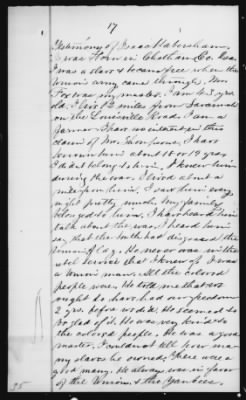 17
Testimony of Isaac Habersham.
I was Born in Chatham Co. Ga.
I was a slave & became free when the
Union army came through. Wm
Fox was my master. I am 43 yrs
old. I live 12 miles from Savannah
on the Louisville Road. I am a
farmer. I have no interest in this
claim of Mr. Thompsons. I have
known him about 18 or 19 years
I did belong to him. I knew him
during the war. I lived about a
mile from him. I saw him every
night pretty much. My family
belonged to him. I have heard him
talk about the war. I heard him
say that the South had disgraced the
Union flag. He never was in the
rebel service that I know of. I was
a Union man. All the colored
people were. He told me that we
ought to have had our freedom
2 yrs. before we did. He seemed to
be glad of it. He was very kind to
the colored people. He was a good
master. I could not tell how ma
ny slaves he owned. There were a
good many. He always was in favor
of the Union & the Yankees.
95